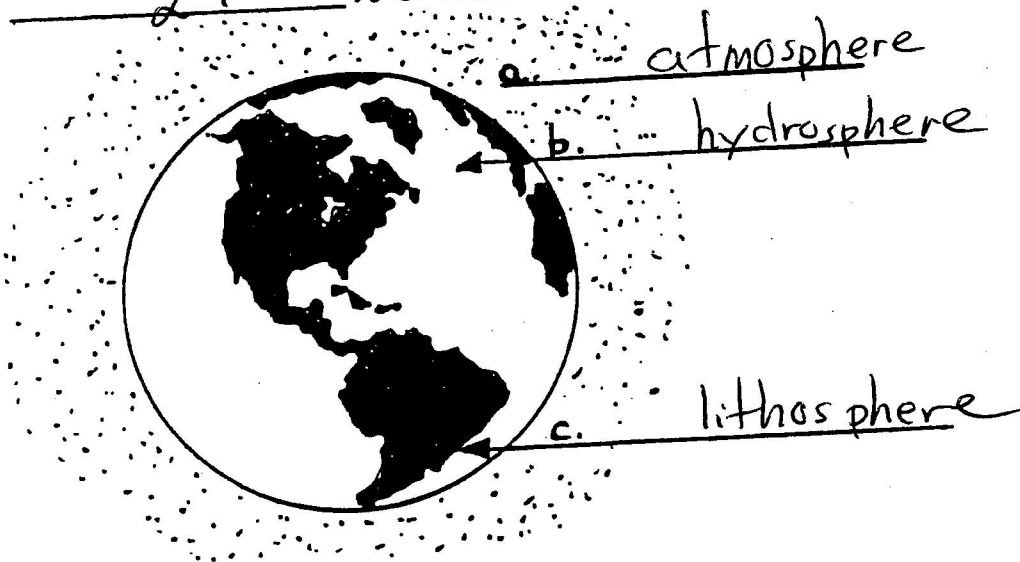 a. atmosphere
b. hydrosphere
c. lithosphere